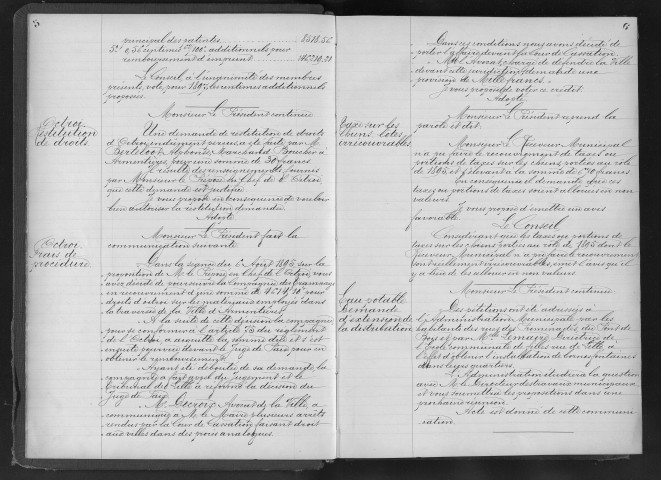 5
principal des patentes 8518.56
5° 2,56 centimes 7/100 additionnels pour
remboursement d'emprunt 14210.21
Le Conseil à l'unanimité des membres
présents, vote, pour 1897, les centimes additionnels
proposés.
Octroi
restitution
de droits
Monsieur le Président continue
Une demande de restitution de droits
d'Octroi indûment perçus, a été faite par M.
Berteloot Alphonse Marchand Boucher à
Armentières pour une somme de 30 francs.
Il résulte des renseignements fournis
par Monsieur le Préposé en Chef de l'Octroi,
que cette demande est justifiée.
Je vous propose en conséquence de vouloir
bien autoriser la restitution demandée.
Adopté
Octroi
Frais de
procédure
Monsieur le Président fait la
communication suivante
Dans la séance du 6 Août 1895, sur la
proposition de M. le Préposé en Chef de l'Octroi, vous
avez décidé de poursuivre la Compagnie des Tramways
en recouvrement d'une somme de pour
droits d'octroi sur les matériaux employés dans
la traversée de la Ville d'Armentières.
A la suite de cette décision la compagnie,
pour se conformer à l'article 73 du règlement
de l'Octroi, a acquitté la somme due et s'est
ensuite pourvue devant le Juge de Paix pour en
obtenir le remboursement.
Ayant été déboutée de sa demande, la
compagnie a fait appel du jugement et le
Tribunal de Lille a réformé la décision du
Juge de Paix.
M. Decroix Avocat de la Ville, a
communiqué à M. le Maire plusieurs arrêts
rendus par la Cour de Cassation faisant droit
aux villes dans des procès analogues.
6
Dans ces conditions nous avons décidé de
porter l'affaire devant la Cour de Cassation.
M. Avocat, chargé de défendre la Ville
devant cette juridiction, demande une
provision de Mille francs.
Je vous propose de voter ce crédit.
Adopté
Taxe sur les
chiens, cotes
irrécouvrables
Monsieur le Président reprend la
parole et dit.
Monsieur le Receveur Municipal
n'a pu faire le recouvrement de taxes ou
portions de taxes sur les chiens portées au rôle
de 1895 et s'élevant à la somme de 70 francs
En conséquence il demande que ces
taxes ou portions de taxes soient allouées en non
valeurs.
Je vous propose d'émettre un avis
favorable.
Le Conseil
Considérant que les taxes ou portions de
taxes sur les chiens portées au rôle de 1895 dont le
Receveur Municipal n'a pu faire le recouvrement
sont réellement irrécouvrables, émet l'avis qu'il
y a lieu de les allouer en non valeurs.
Eau potable
Demande
d'extension de
la distribution
Monsieur le Président continue
Des pétitions ont été adressées à
l'Administration Municipale par les
habitants des rues des Promenades, du Pont de
Bois et par Mr. Lemaire Directeur de
l'Ecole communale de filles rue de Lille à
l'effet d'obtenir l'installation de bornes fontaines
dans leurs quartiers.
L'administration étudiera la question
avec M. le Directeur des travaux municipaux
et vous soumettra les propositions dans une
prochaine réunion.
Acte est donné de cette commun-
ication.